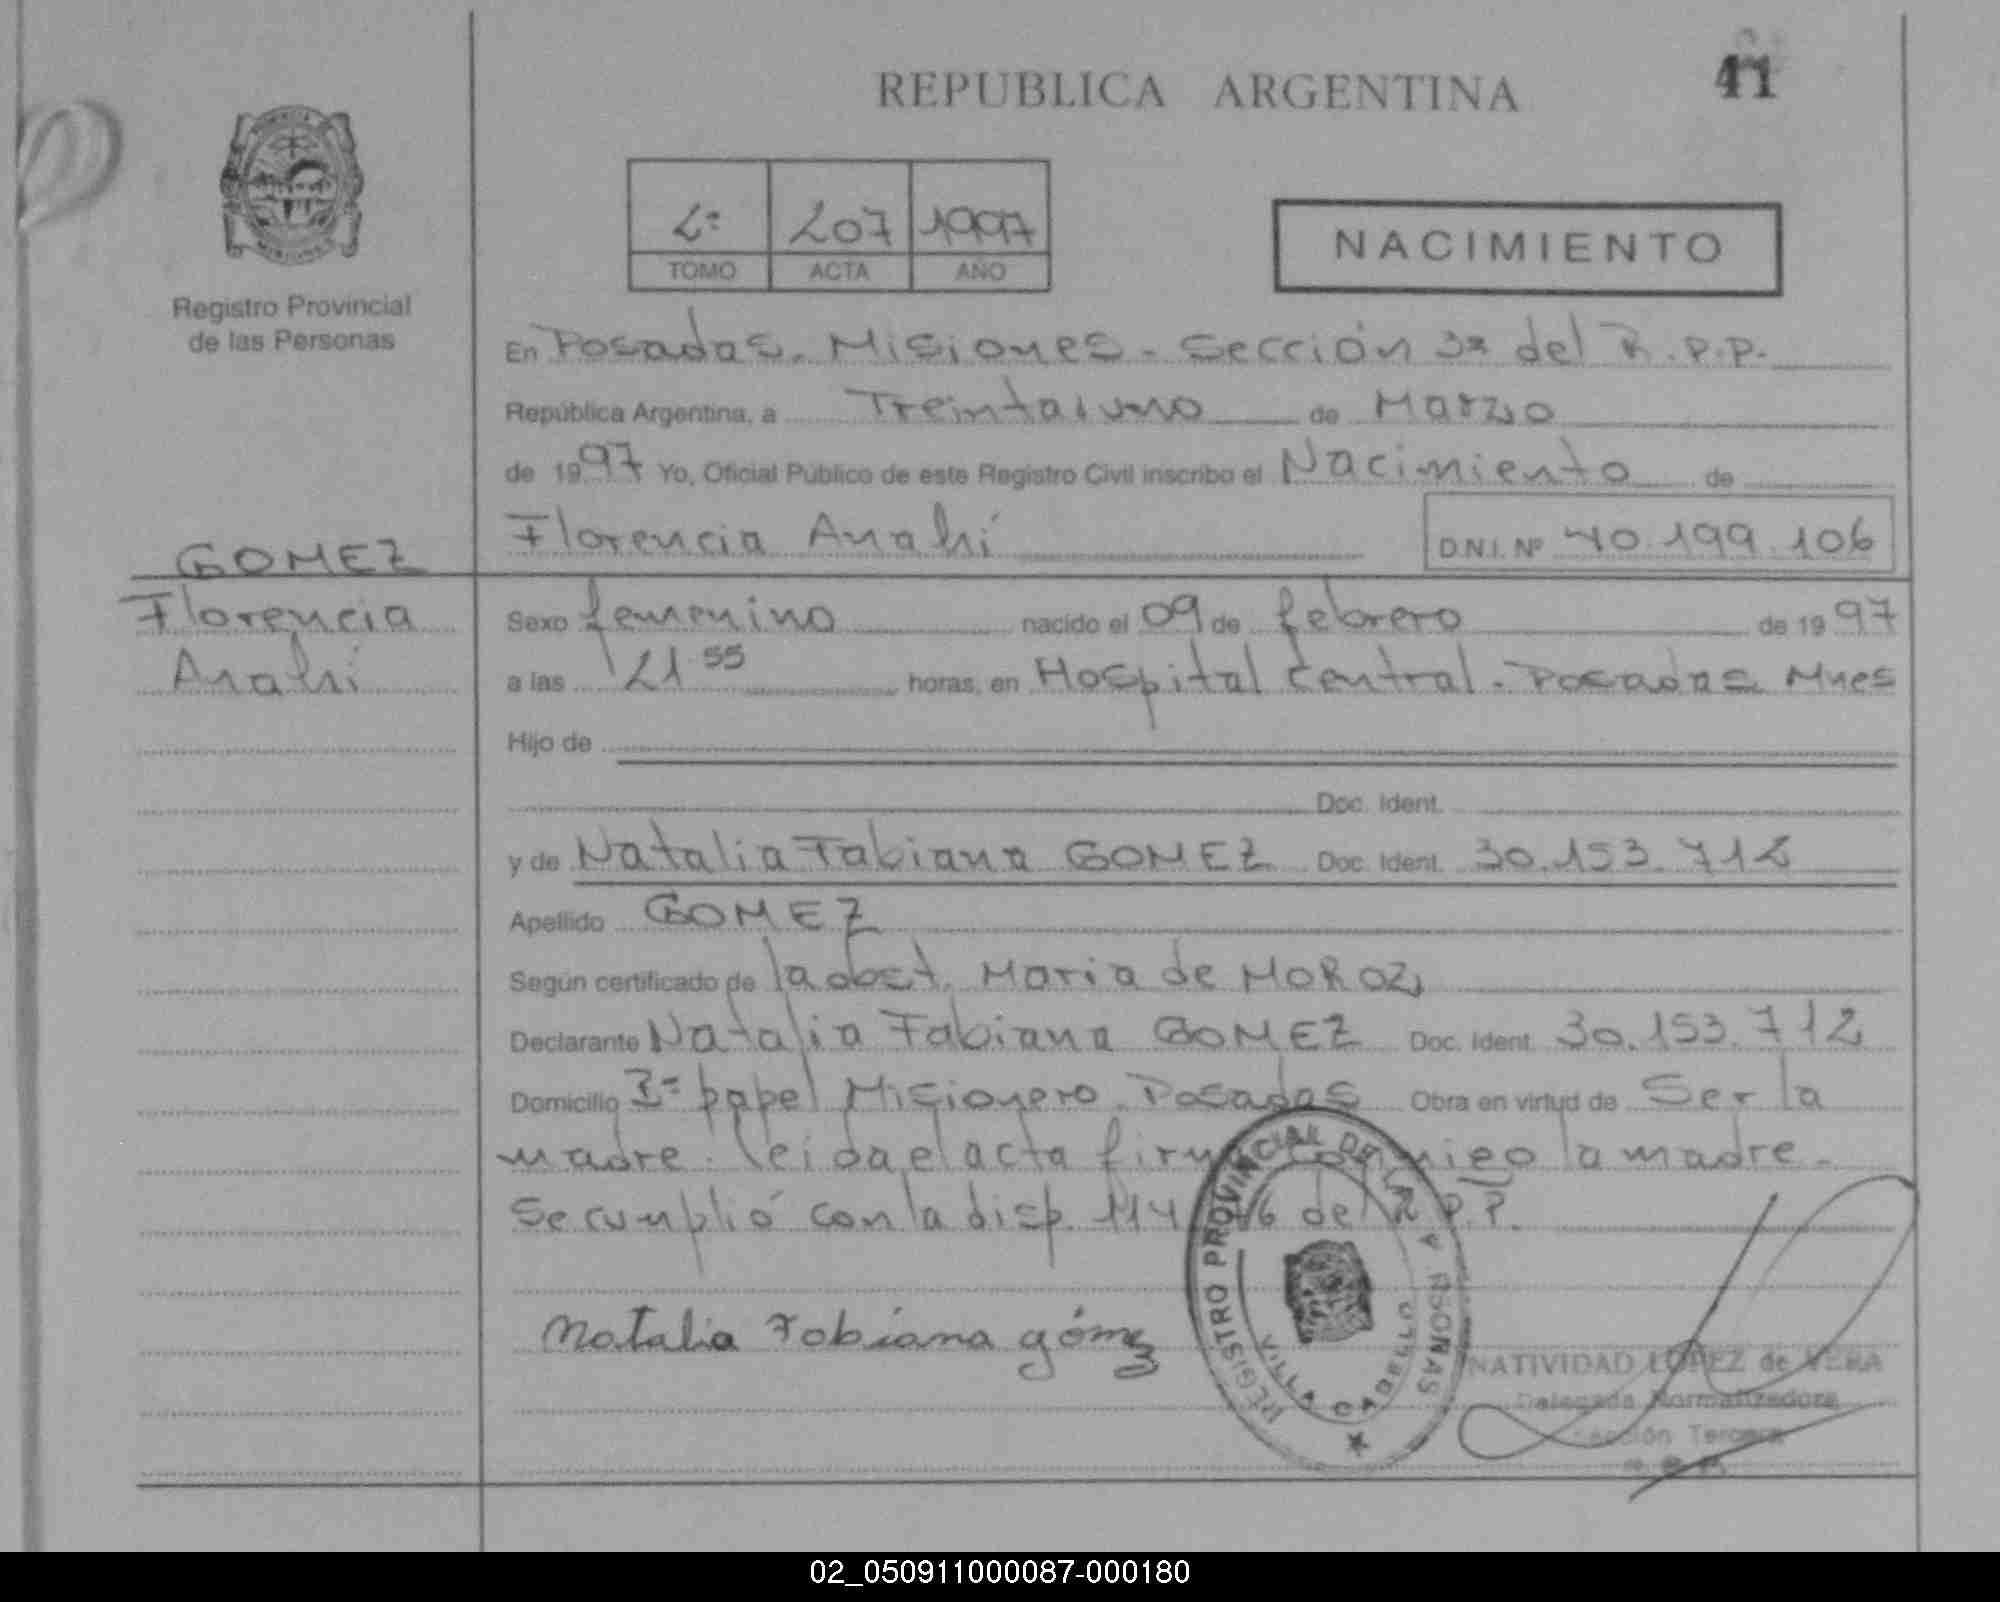 REPUBLICA ARGENTINA
41
2º 207 1997
TOMO ACTA AÑO
NACIMIENTO
Registro Provincial
de las Personas
En Posadas. Misiones - Sección 3ª del R.P.P.
República Argentina, a Treintaiuno de Marzo
de 1997 Yo, Oficial Público de este Registro Civil inscribo el Nacimiento de
Florencia Anahí D.N.I. Nº 40.199.106
GOMEZ
Florencia
Anahí
Sexo femenino nacido el 09 de febrero de 1997
a las 21 55 horas, en Hospital Central - Posadas Mnes
Hijo de
Doc. Ident.
y de Natalia Fabiana GOMEZ Doc. Ident. 30.153.712
Apellido GOMEZ
Según certificado de la obst. Maria de MOROZ
Declarante Natalia Fabiana GOMEZ Doc. Ident. 30.153.712
Domicilio papel Misionero. Posadas Obra en virtud de Ser la
madre. leida el acta la madre -
Se cumplió con la disp. 114 del R.P.P.
Natalia Fabiana gómez
REGISTRO PROVINCIAL DE LAS PERSONAS
VILLA CABELLO
NATIVIDAD LOPEZ de VERA
Delegada Normalizadora
Sección Tercera
02_050911000087-000180